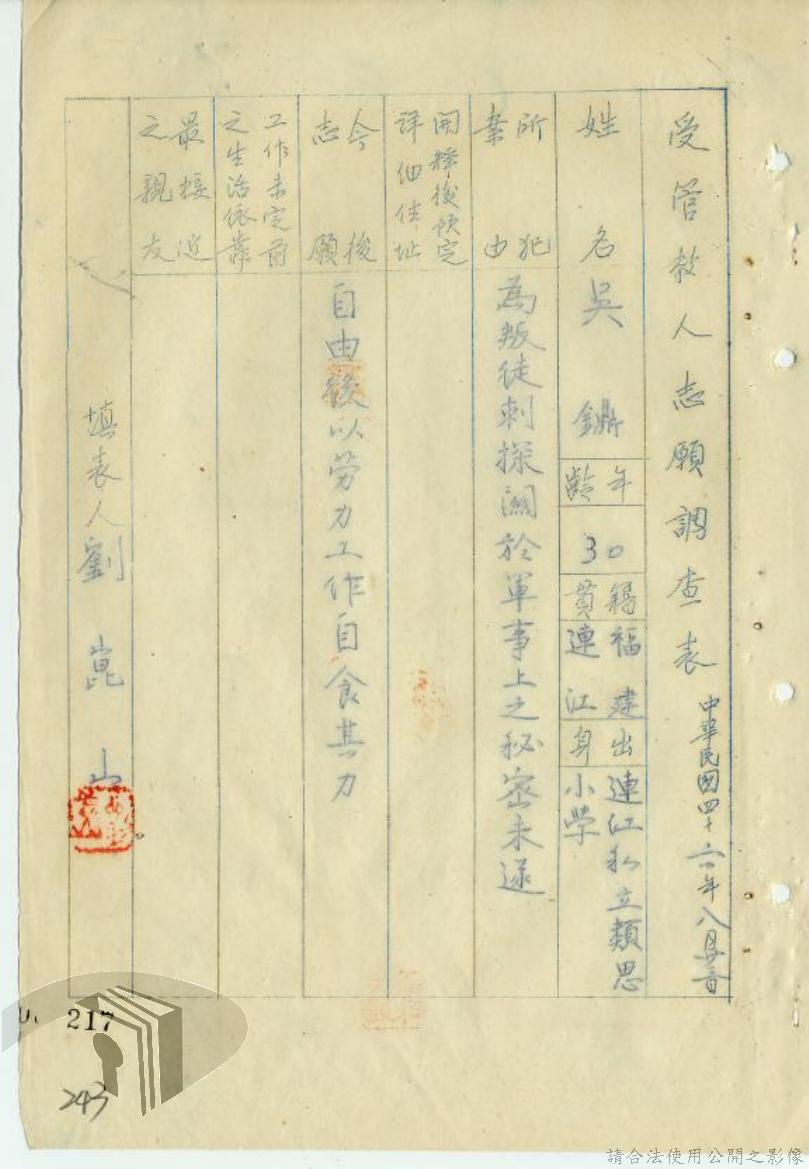 受管教人志願調查表 中華民國四十六年八月廿三日
姓名 吳鐤 年齡 30 籍貫 福建連江 出身 連江私立類思小學
所犯案由 為叛徒刺探關於軍事上之秘密未遂
開釋後預定詳細住址
今後志願 自由後以勞力工作自食其力
工作未定前之生活依靠
最接近之親友
填表人劉崑山
217
243
請合法使用公開之影像